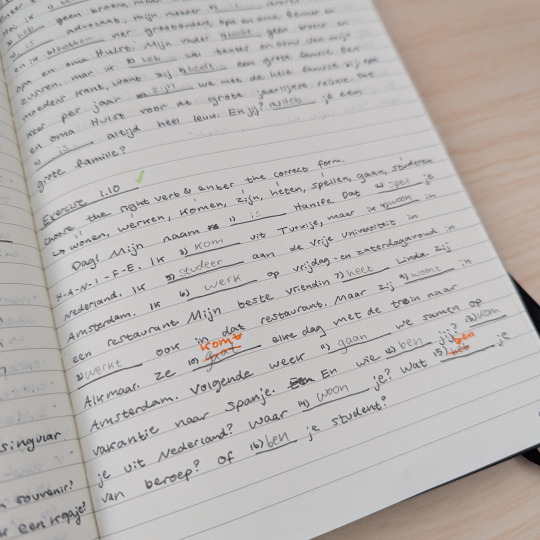 advocaat, mijn moeder
en ik hebben vier grootouders, opa en oma
opa en oma Hulst. Mijn vader heeft geen broers en
zussen, maar ik heb wel tantes en ooms van mijn
moeders kant, want zij heeft een grote familie. Een
keer per jaar zijn we met de hele familie bij opa
en oma Hulst voor de grote jaarlijkse reünie. Dat
is altijd heel leuk. En jij? Heb je een
grote familie?
Exercise 1.10 ✓
choose the right verb & enter the correct form.
↳ wonen, werken, komen, zijn, heten, spellen, gaan, studeren
Dag! Mijn naam 1) is Hanife. Dat 2) spel je
H-A-N-I-F-E. Ik 3) kom uit Turkije, maar ik 4) woon in
Nederland. Ik 5) studeer aan de Vrije Universiteit in
Amsterdam. Ik 6) werk op vrijdag- en zaterdagavond in
een restaurant. Mijn beste vriendin 7) heet Linda. Zij
8) werkt ook in dat restaurant. Maar zij 9) woont in
Alkmaar. Ze 10) gaat komt elke dag met de trein naar
Amsterdam. Volgende week 11) gaan we samen op
vakantie naar Spanje. En wie 12) ben jij? 13) kom
je uit Nederland? Waar 14) woon je? Wat 15) heb ben je
van beroep? Of 16) ben je student?
singular.
souvenir?
een kopje?